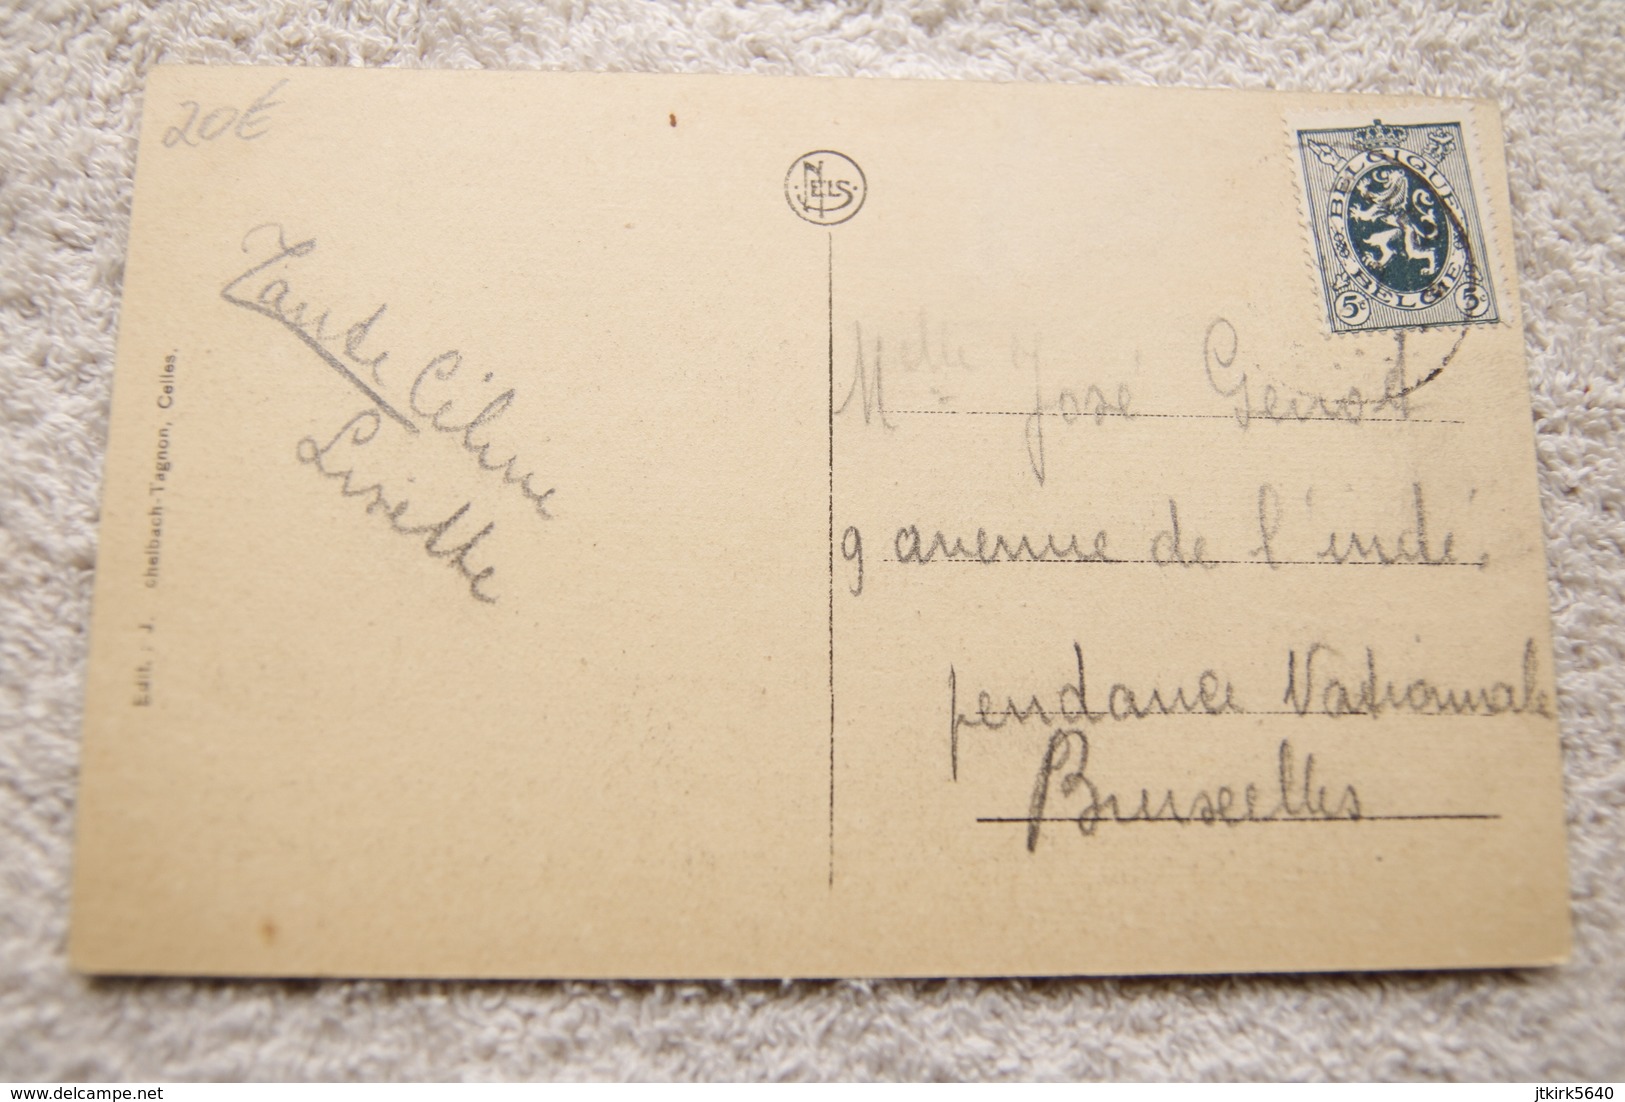 20€
NELS
BELGIQUE
BELGIE
5c 5c
Tante Céline
Lisette
Edit. J. J. chelbach-Tagnon, Celles.
Mdlle José Geniot
9 avenue de l'indé
pendance Nationale
Bruxelles
delcampe.net
jtkirk5640